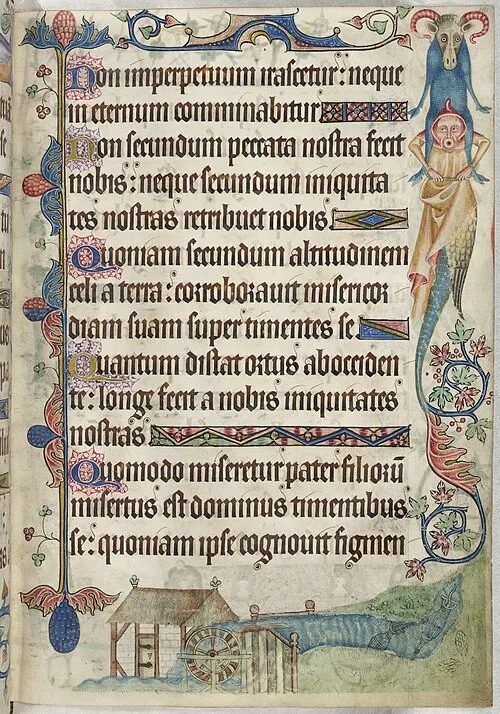 Non imperpetuum irascetur: neque
in eternum comminabitur
Non secundum peccata nostra fecit
nobis: neque secundum iniquita
tes nostras retribuet nobis
Quoniam secundum altitudinem
celi a terra: corroborauit misericor
diam suam super timentes se
Quantum distat ortus ab occiden
te: longe fecit a nobis iniquitates
nostras
Quomodo miseretur pater filiorū
misertus est dominus timentibus
se: quoniam ipse cognouit figmen